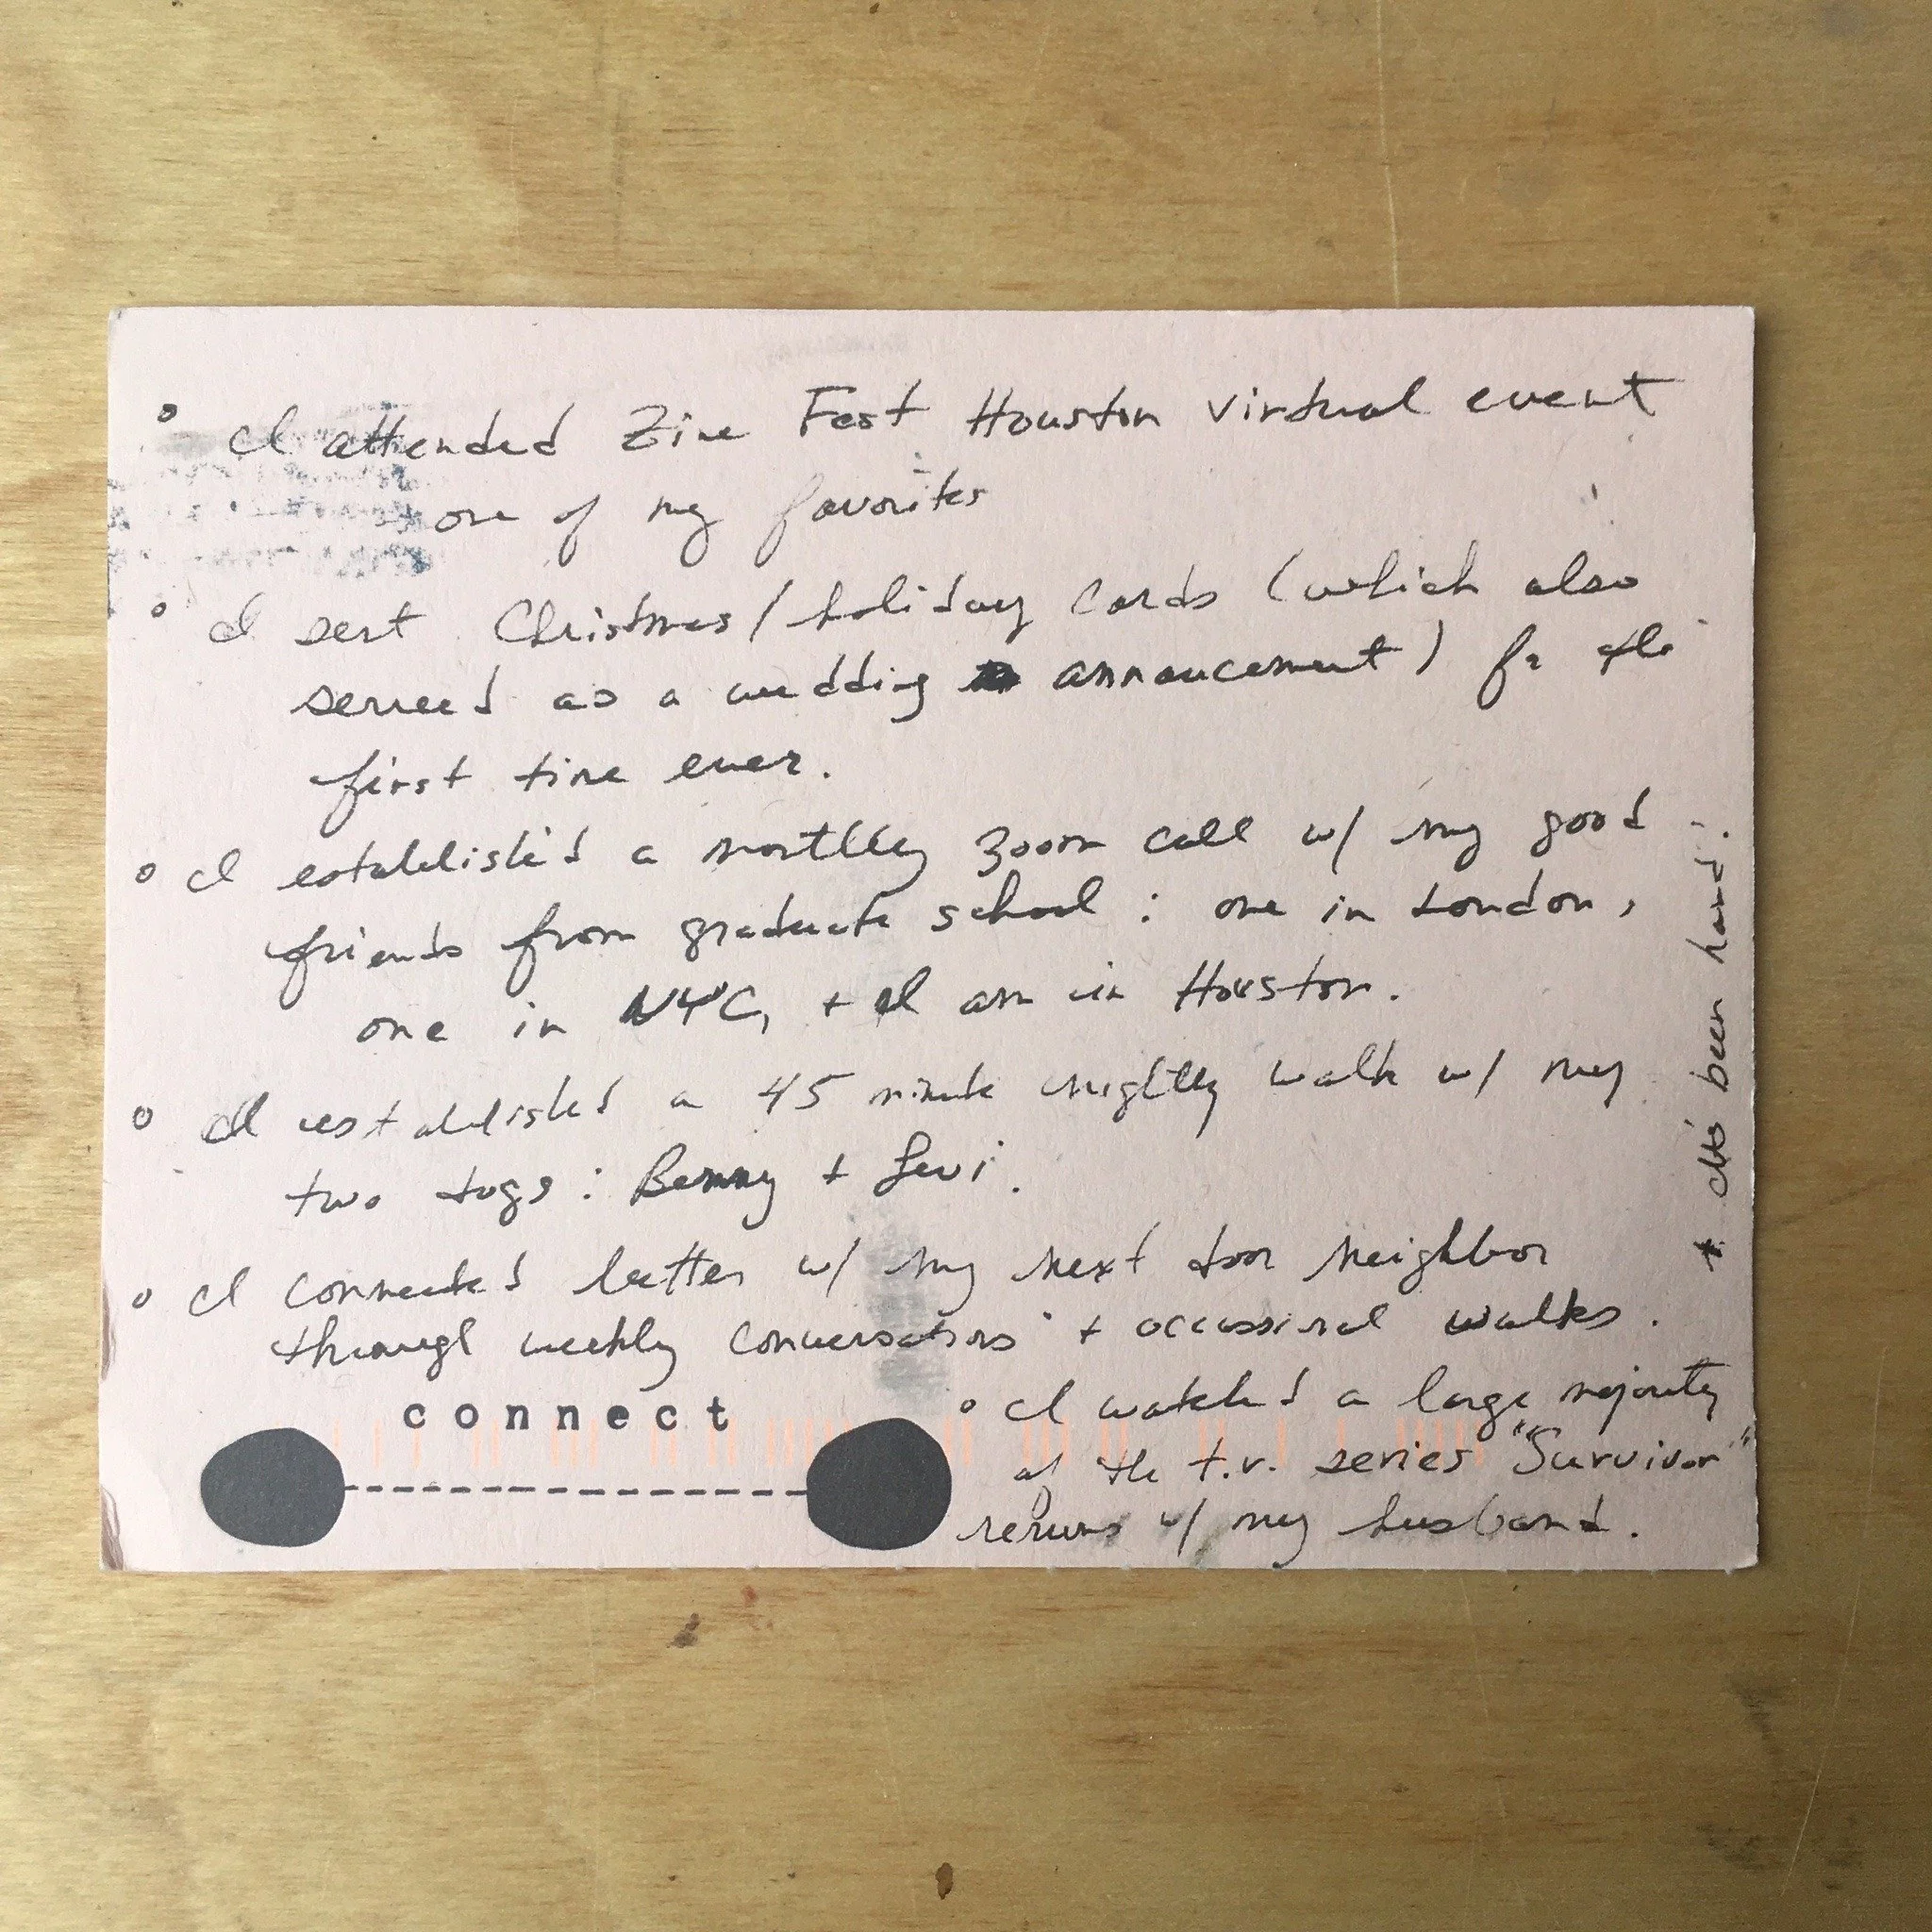 ° I attended Zine Fest Houston virtual event
one of my favorites
° I sent Christmas/holiday cards (which also
served as a wedding annoucement) for the
first time ever.
° I established a monthly zoom call w/ my good
friends from graduate school: one in London,
one in NYC, + I am in Houston.
° I established a 45 minute nightly walk w/ my
two dogs: Benny + Levi.
° I connected better w/ my next door neighbor
through weekly conversations + occassional walks.
connect
° I watched a large majority
of the t.v. series "Survivor"
reruns w/ my husband.
* It's been hard.